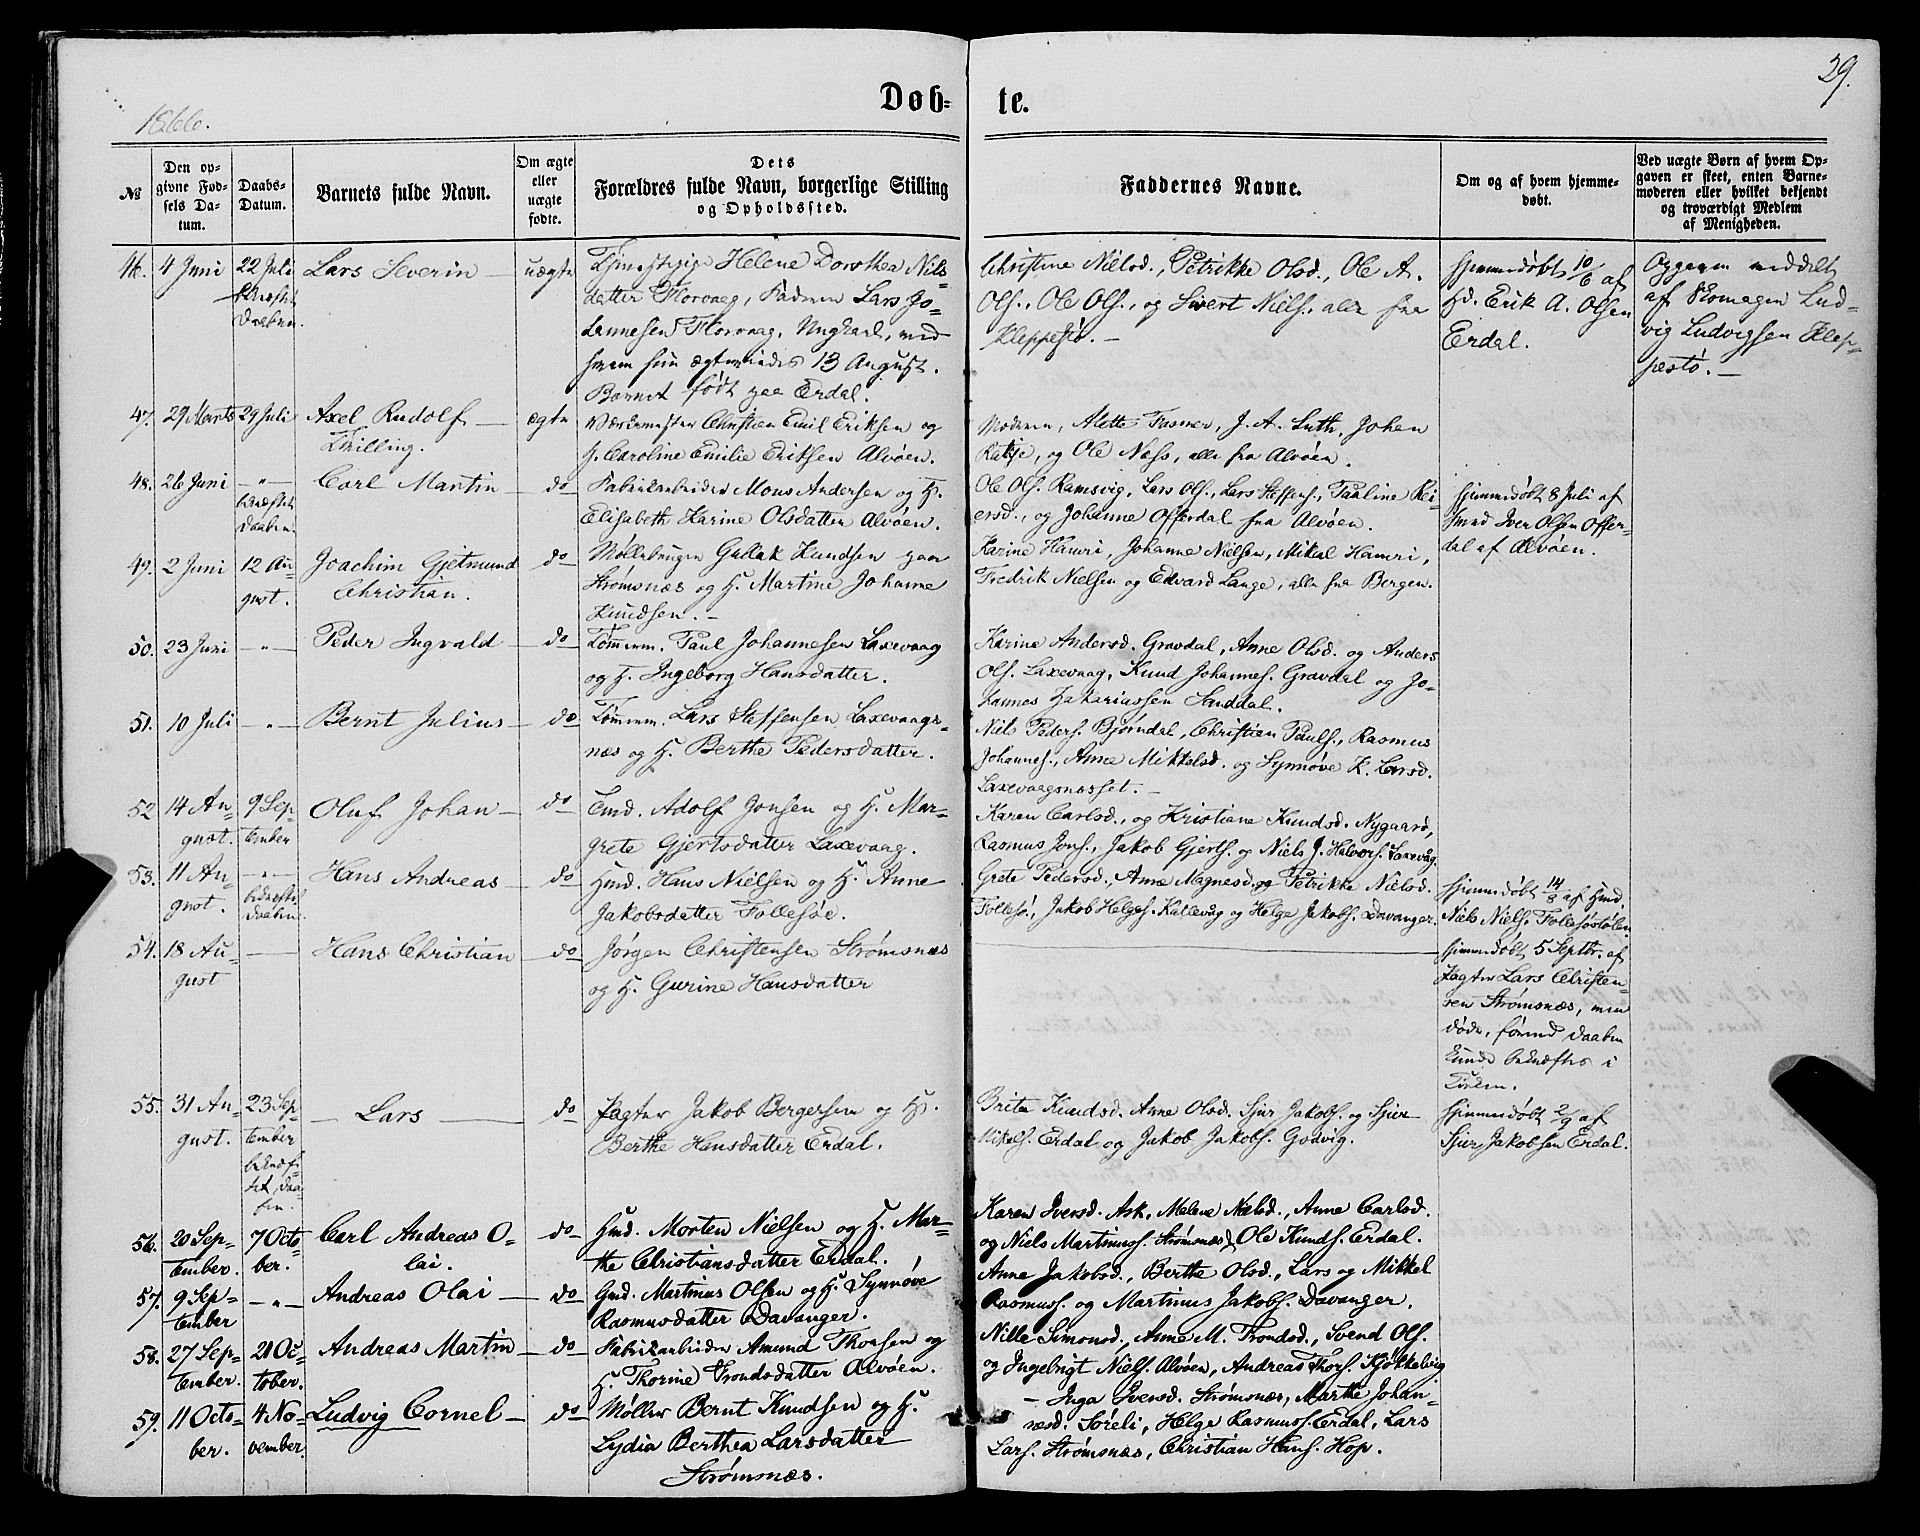 29.
Døb-te.
1866.
№
Den op-
givne Fød-
sels Da-
tum.
Daabs-
Datum.
Barnets fulde Navn.
Om ægte
eller
uægte
fødte.
Dets
Forældres fulde Navn, borgerlige Stilling
og Opholdssted.
Faddernes Navne.
Om og af hvem hjemme-
døbt.
Ved uægte Børn af hvem Op-
gaven er skeet, enten Barne-
moderen eller hvilket bekjendt
og troværdigt Medlem
af Menigheden.
46. 4 Juni 22 Juli Lars Severin uægte
Daaben.
Helene Dorothea Nils-
datter Florvaag, Faderen Lars Jo-
hannesen Florvaag, Ungkarl, med
hvem hun ægteviedes 13 August.
Barnet født paa Erdal.
Christine Nielsd., Petrikke Olsd., Ole A.
Ols., Ole Ols., og Sivert Niels., alle fra
Kleppestø.
Hjemmedøbt 10/6 af
Hd. Erik A. Olsen
Erdal.
Opgaven meddelt
af Lud-
vig Ludvigsen Klep-
pestø.
47. 29 Marts 29 Juli Axel Rudolf ægte
Tvilling.
Værkmester Christian Emil Eriksen og
H. Caroline Emilie Eriksen Alvøen.
Moderen, Alette Fasmer, J. A. Luth, Johan
og Ole Næss, alle fra Alvøen.
48. 26 Juni -"- Carl Martin do
bekræftet
Daaben.
Fabrikarbeider Mons Andersen og H.
Elisabeth Karine Olsdatter Alvøen.
Ole Ols. Ramsvig, Lars Ols., Lars Steffens., Pauline Rei-
ersd., og Johanne Offerdal fra Alvøen.
Hjemmedøbt 8 Juli af
Iver Olsen Offer-
dal af Alvøen.
49. 2 Juni 12 Au-
gust. Joachim Gjetmund
Christian. do
Møllebruger Gullak Knudsen paa
Strømsnæs og H. Martine Johanne
Knudsen.
Karine Hamri, Johanne Nielsen, Mikal Hamri,
Fredrik Nielsen og Edvard Lange, alle fra Bergen.
50. 23 Juni -"- Peder Ingvald do
Tømmm. Paul Johannesen Laxevaag
og H. Ingeborg Hansdatter.
Karine Andersd. Gravdal, Anne Olsd. og Anders
Ols. Laxevaag, Knud Johannes. Gravdal og Jo-
hannes Zakariassen Sanddal.
51. 10 Juli -"- Bernt Julius do
Tømmm. Lars Steffensen Laxevaags-
næs og H. Berthe Pedersdatter.
Niels Peders. Bjørndal, Christian Pauls., Rasmus
Johannes., Anne Mikkelsd. og Synnøve K. Larsd.
Laxevaagsnæsset.
52 14 Au-
gust. 9 Sep-
tember Oluf Johan do
Tmd. Adolf Jonsen og H. Mar-
grete Gjertsdatter Laxevaag.
Karen Carlsd., og Kristiane Knudsd. Nygaard,
Rasmus Jons., Jakob Gjerts. og Niels J. Halvors. Laxevåg.
53. 11 Au-
gust. -"- Hans Andreas do
bekræftet
Daaben.
Hmd. Hans Nielsen og H. Anne
Jakobsdatter Follesøe.
Grete Pedersd., Anne Magnesd. og Petrikke Nielsd.
Follesø, Jakob Helges. Kallevåg og Helge Jakobs. Davanger.
Hjemmedøbt 14/8 af Hmd.
Niels Niels. Follesøstølen.
54. 18 Au-
gust Hans Christian do
Jørgen Christensen Strømsnæs
og H. Gurine Hansdatter
Hjemmedøbt 5 Septbr. af
Jagter Lars Christen-
sen Strømsnæs, men
døde, førend Daaben
kunde bekræftes i
Kirken.
55. 31 Au-
gust. 23 Sep-
tember
bekræf-
tet Daa-
ben. Lars do
Jagter Jakob Bergersen og H.
Berthe Hansdatter Erdal.
Brite Knudsd. Anne Olsd. Sjur Jakobs. og Sjur
Mikels. Erdal og Jakob Jakobs. Godvig.
Hjemmedøbt 2/9 af
Sjur Jakobsen Erdal.
56. 20 Sep-
tember. 7 Octo-
ber. Carl Andreas O-
lai. do
Hmd. Morten Nielsen og H. Mar-
the Christiansdatter Erdal.
Karen Iversd. Ask, Melene Nielsd., Anne Carlsd.
og Niels Martinus. Strømsnæs, Ole Knuds. Erdal.
57. 9 Sep-
tember -"- Andreas Olai do
Gmd. Martinus Olsen og H. Synnøve
Rasmusdatter Davanger.
Anne Jakobsd., Berthe Olsd., Lars og Mikkel
Rasmus. og Martinus Jakobs. Davanger.
58. 27 Sep-
tember. 21 Oc-
tober. Andreas Martin do
Fabrikarbeider Amund Thorsen og
H. Thorine Trondsdatter Alvøen.
Nille Simonsd., Anne M. Trondsd., Svend Ols.
og Ingebrigt Niels. Alvøen, Andreas Thors. Kjøkkelvig
59. 11 Octo-
ber. 4 No-
vember. Ludvig Cornel do
Møller Bernt Knudsen og H.
Lydia Berthea Larsdatter
Strømsnæs.
Inga Iversd. Strømsnæs, Marthe Johan-
nesd. Søreli, Helge Rasmus. Erdal, Lars
Lars. Strømsnæs, Christian Hans. Hop.